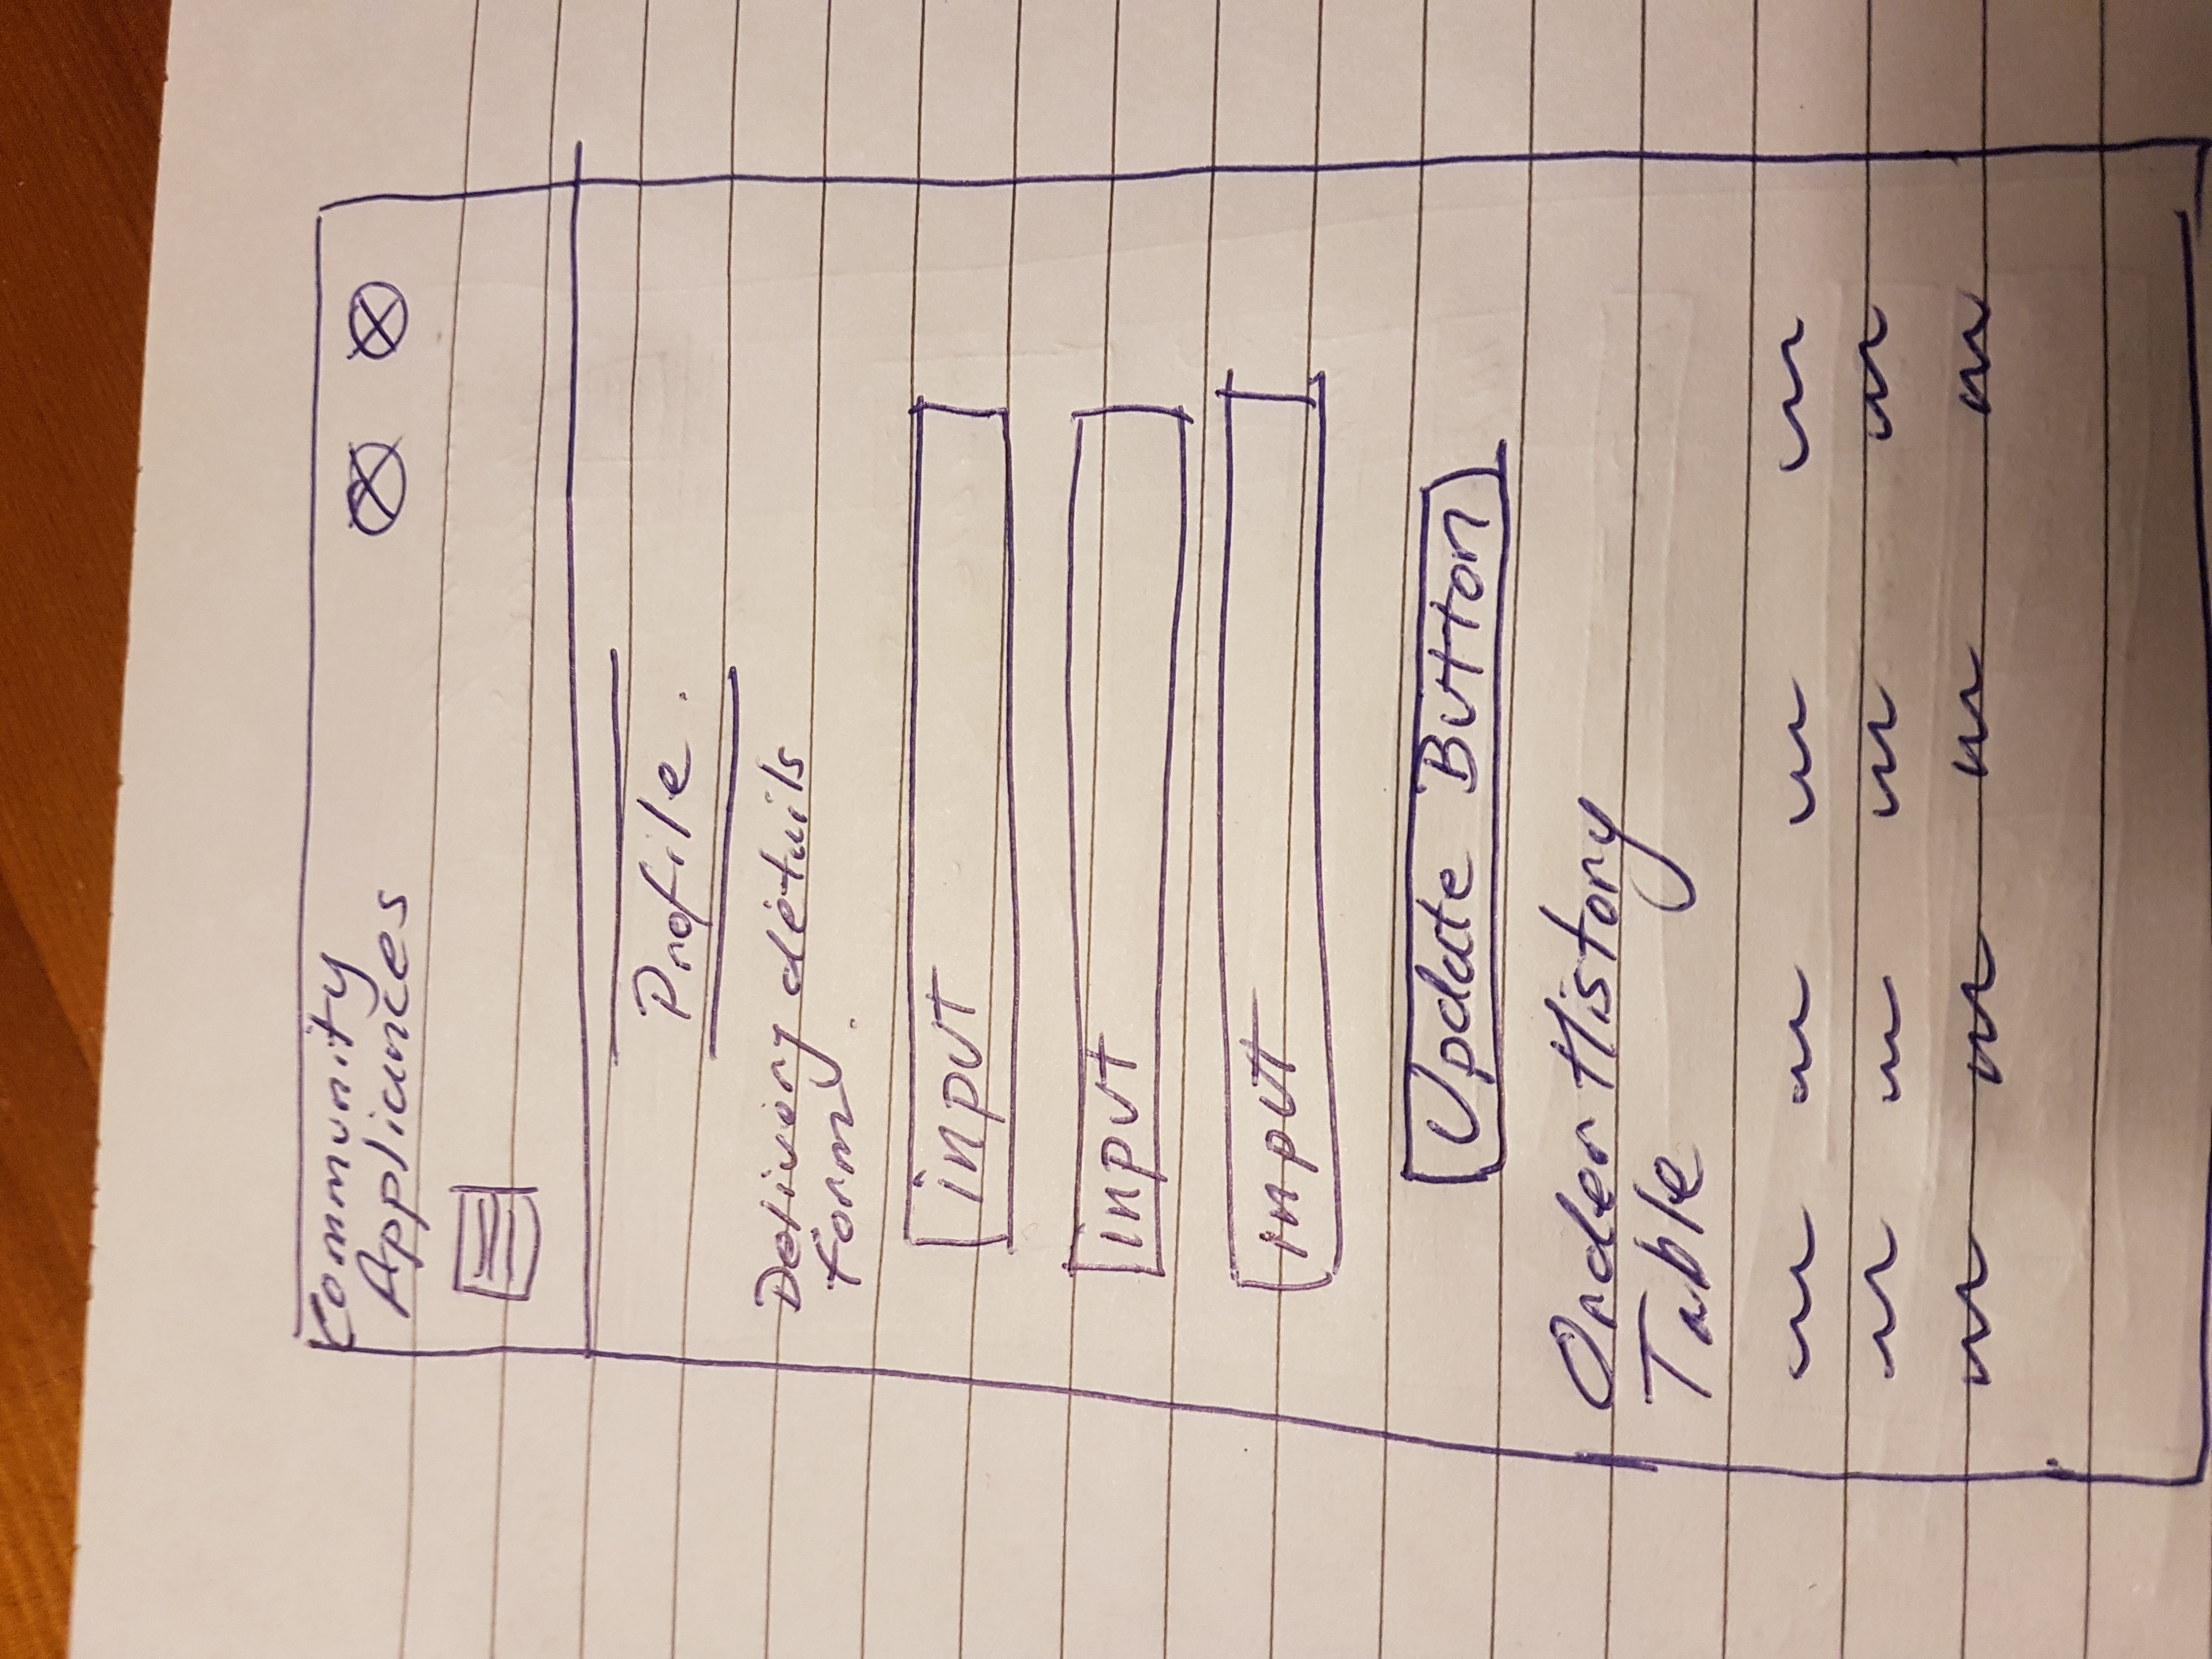 Community
Appliances
Profile.
Delivery details
form.
input
input
input
Update Button
Order History
Table